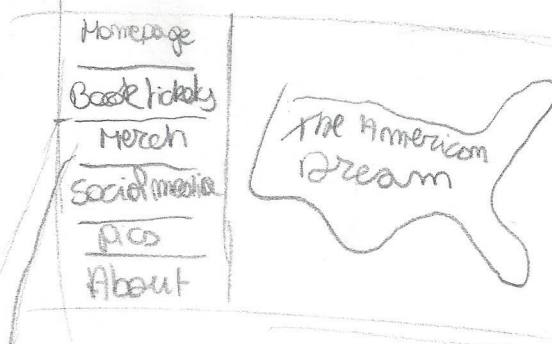 Homepage
Book tickets
Merch
Social media
Pics
About
The American
Dream